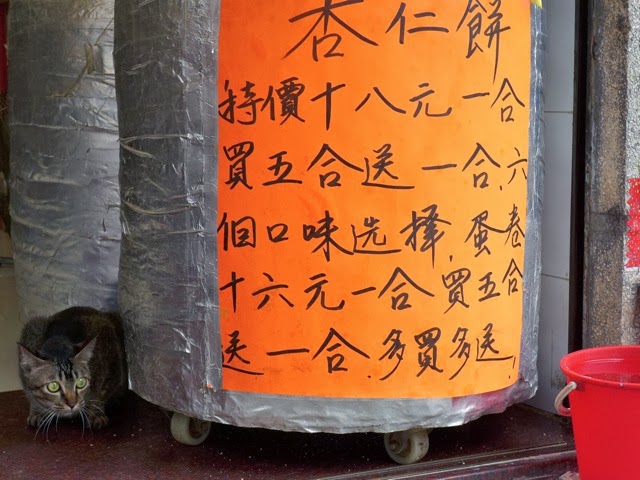 杏仁餅
特價十八元一合
買五合送一合,六
個口味选擇,蛋卷
十六元一合,買五合
送一合.多買多送!